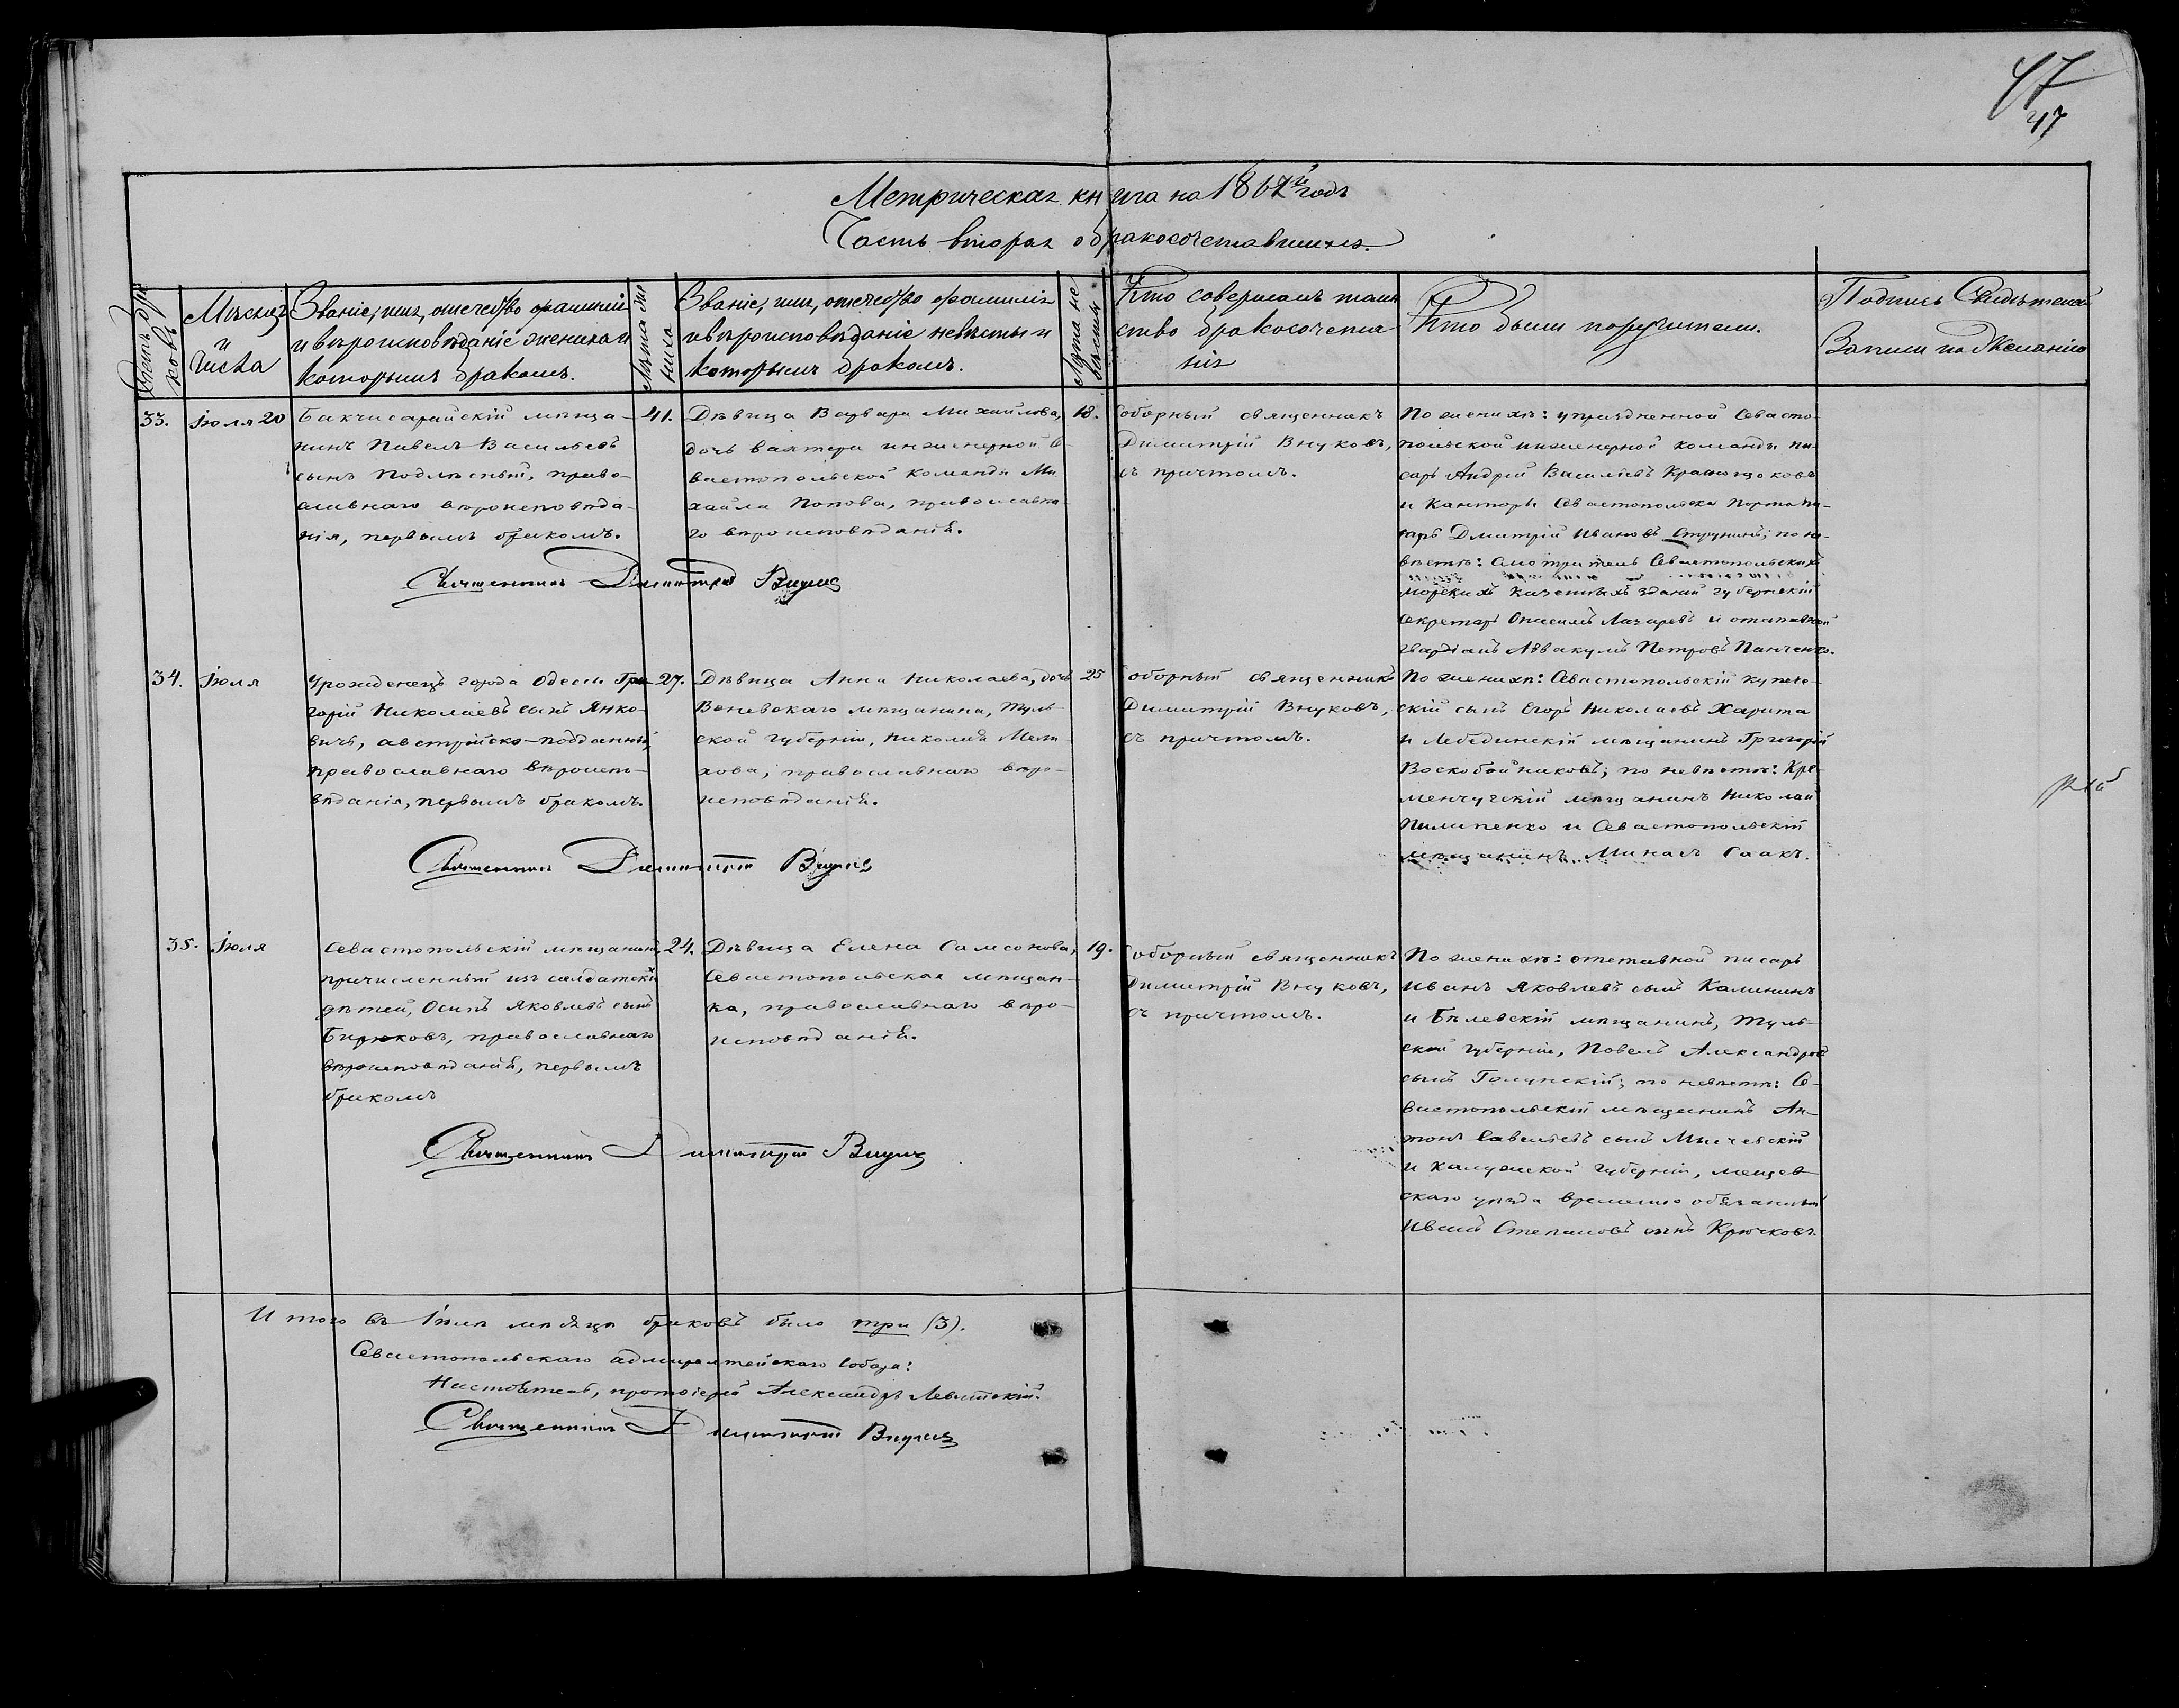 47
47
Метрическая книга на 1867й годъ
Часть вторая о бракосочетавшихся.
Счетъ браковъ
Мѣсяцъ и числа
Званіе, имя, отечество фамилія
и вѣроисповѣданіе жениха и
которымъ бракомъ.
Лѣта жениха
Званіе, имя, отечество фамилія
и вѣроисповѣданіе невѣсты и
которымъ бракомъ.
Лѣта невѣсты
Кто совершалъ таин
ство бракосочета
нія
Кто были поручители.
Подпись Свидѣтелей
Записи по желанію
33.
Іюля 20
Бакчисарайскій мѣща-
нинъ Павелъ Васильевъ
сынъ Подлѣсный, право-
славнаго вѣроисповѣда-
нія, первымъ бракомъ.
41.
Дѣвица Варвара Михайлова,
дочь вахтера инженерной Се-
вастопольской команды Ми
хаила Попова, православна-
го вѣроисповѣданія.
18.
Соборный священникъ
Димитрій Внуковъ,
съ причтомъ.
По женихѣ: упраздненной Севасто-
польской инженерной команды пи-
сарь Андрей Васильевъ
и Канторы Севастопольска Порта пи-
сарь Дмитрій Ивановъ Струнинъ; по не-
вѣстѣ: Смотритель Севастопольскихъ
морскихъ казенныхъ зданій губернскій
секретарь Онисимъ Лазаревъ и отставной
гвардіанъ Аввакумъ Петровъ Панченко.
Священникъ Димитрій Внуковъ
34.
Іюля
Урожденецъ города Одессы Гри-
горій Николаевъ сынъ Янко-
вичъ, австрійско-подданный,
православнаго вѣроиспо-
вѣданія, первымъ бракомъ.
27.
Дѣвица Анна Николаева, дочь
Веневскаго мѣщанина, Туль-
ской губерніи, Николая
православнаго вѣро-
исповѣданія.
25
Соборный священникъ
Димитрій Внуковъ,
съ причтомъ.
По женихѣ: Севастопольскій купече-
скій сынъ Егоръ Николаевъ Харита
и Лебединскій мѣщанинъ Григорій
Воскобойниковъ; по невѣстѣ: Кре-
менчугскій мѣщанинъ Николай
Пилипенко и Севастопольскій
мѣщанинъ Минасъ Саакъ.
Священникъ Димитрій Внуковъ
35.
Іюля
Севастопольскій мѣщанинъ,
причисленный изъ салдатскихъ
дѣтей, Осипъ Яковлевъ сынъ
Бирюковъ, православнаго
вѣроисповѣданія, первымъ
бракомъ
24.
Дѣвица Елена Самсонова,
Севастопольская мѣщан-
ка, православнаго вѣро-
исповѣданія.
19.
Соборный священникъ
Димитрій Внуковъ,
съ причтомъ.
По женихѣ: отставной писарь
Иванъ Яковлевъ сынъ Калининъ
и Бѣлевскій мѣщанинъ, Туль-
ской губерніи, Павелъ Александровъ
сынъ Голунскій; по невѣстѣ: Се-
вастопольскій мѣщанинъ Ан-
тонъ Савельевъ сынъ
и Калужской губерніи, Мещев-
скаго уѣзда временно обязанный
Иванъ Степановъ сынъ Крючковъ.
Священникъ Димитрій Внуковъ
Итого въ Іюлѣ мѣсяцѣ браковъ было три (3).
Севастопольскаго адмиралтейскаго собора:
Настоятель, протоіерей Александръ Левитскій.
Священникъ Димитрій Внуковъ